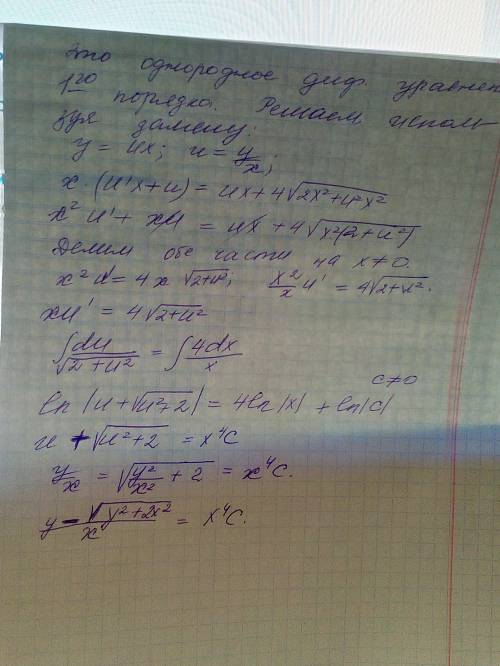 Это однородное диф. уравнен
1го порядка. Решаем испол
зуя замену:
y = ux; u = y/x;
x·(u'x+u) = ux+4√(2x²+u²x²)
x²u' + xu = ux + 4√(x²(2+u²))
Делим обе части на x≠0.
x²u' = 4x √(2+u²); x²/x u' = 4√(2+u²).
xu' = 4√(2+u²)
∫ du/√(2+u²) = ∫ 4dx/x
c≠0
ln|u+√(u²+2)| = 4ln|x| + ln|C|
u + √(u²+2) = x⁴C
y/x = √(y²/x² + 2) = x⁴C.
(y - √(y²+2x²))/x = x⁴C.